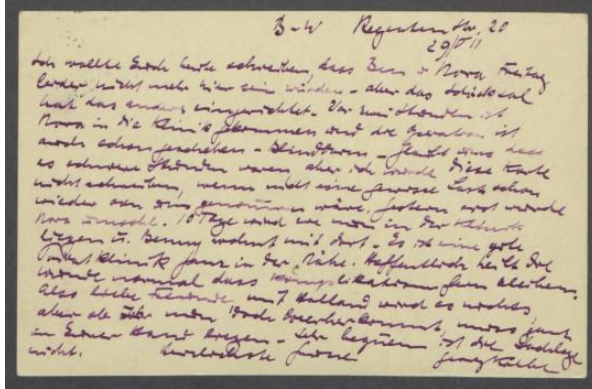 B-W Regentenstr. 20
29/VII
Ich wollte Euch heute schreiben, dass Benn & Nora Freitag
leider nicht mehr hier sein würden - aber das Schicksal
hat das anders eingerichtet. Vor neun Stunden ist
Nora in die Klinik gekommen und die Operation ist
auch schon geschehen - Blinddarm - Glaubt uns dass
es schwere Stunden waren, aber ich würde diese Karte
nicht schreiben, wenn nicht eine gewisse Last schon
wieder von uns genommen wäre. Gestern erst wurde
Nora 10 Tage wird sie nun in der Klinik
liegen u. Benny wohnt mit dort. Es ist eine gute
Klinik ganz in der Nähe. Hoffentlich heilt die
Wunde normal dass Komplikationen fern bleiben.
Also liebe Freunde, mit Holland wird es nichts
aber ob Ihr nun doch muss ganz
in Eurer Hand liegen. Sehr ist die
nicht. Herzlichste Grüsse Georg